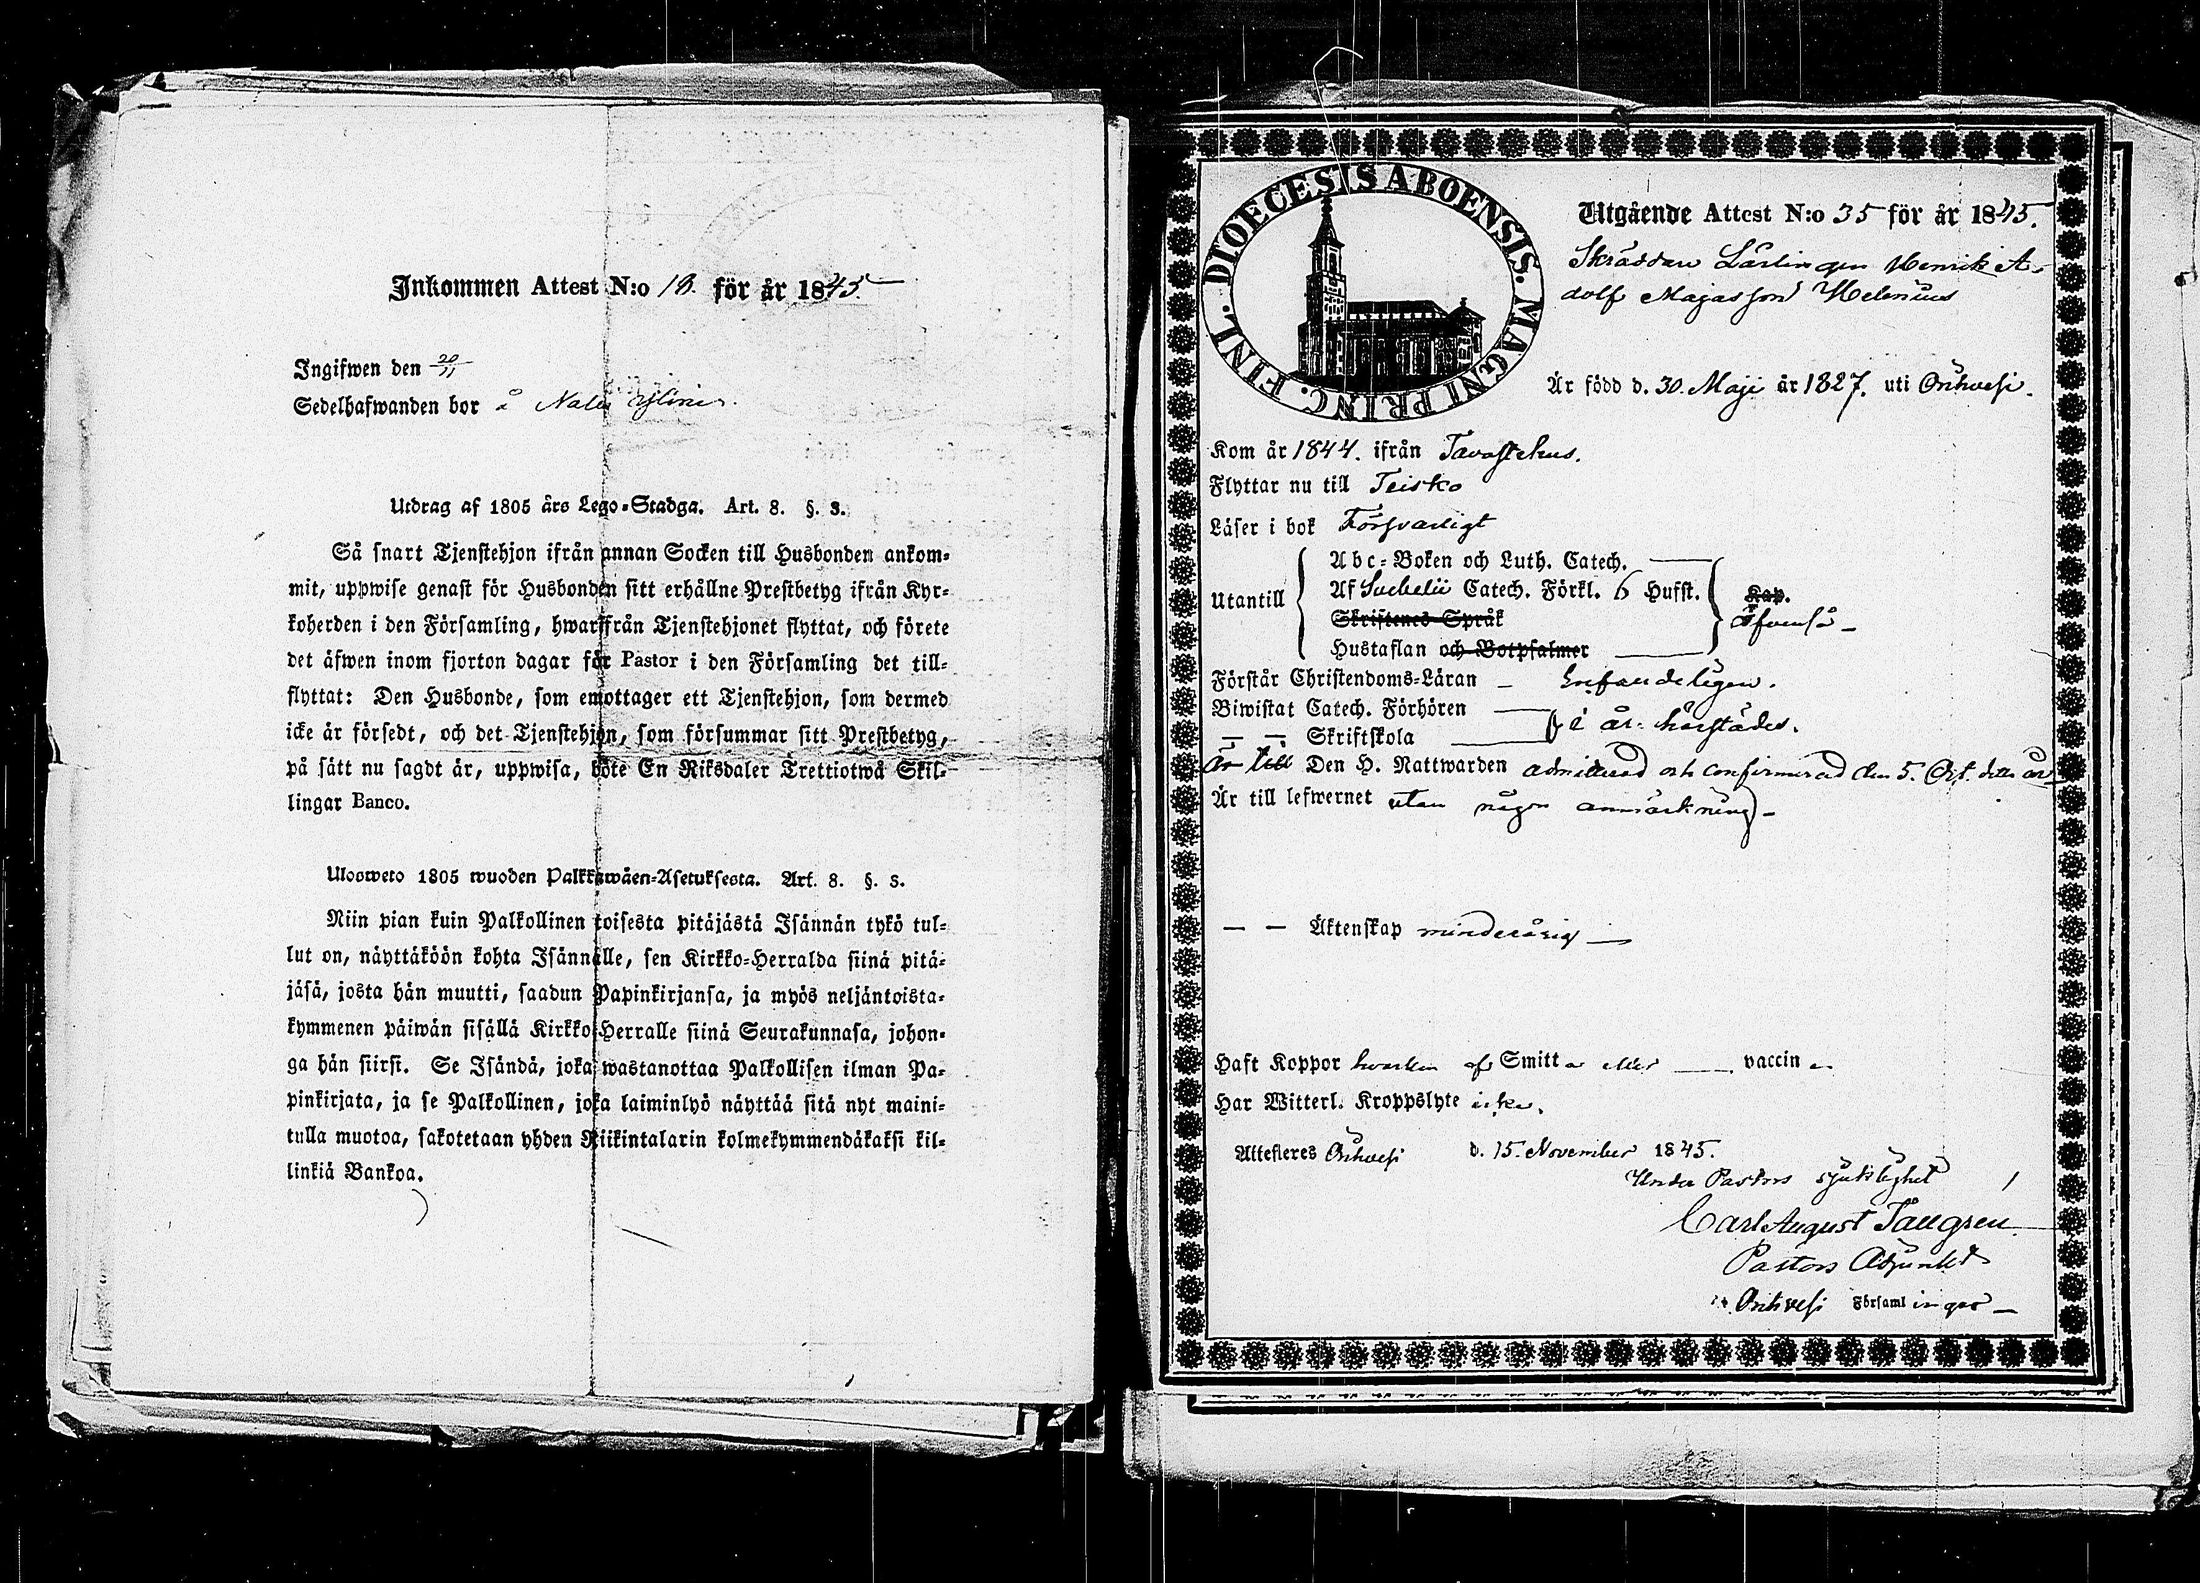 Inkommen Attest N:o 18. för år 1845.
Ingifwen den 20/11
Sedelhafwanden bor å
Utdrag af 1805 års Lego-Stadga. Art. 8. §. 3.
Så snart Tjenstehjon ifrån annan Socken till Husbonden ankom-
mit, uppwise genast för Husbonden sitt erhållne Prestbetyg ifrån Kyr-
koherden i den Församling, hwarifrån Tjenstehjonet flyttat, och förete
det äfwen inom fjorton dagar för Pastor i den Församling det till-
flyttat: Den Husbonde, som emottager ett Tjenstehjon, som dermed
icke är försedt, och det Tjenstehjon, som försummar sitt Prestbetyg,
på sätt nu sagdt är, uppwisa, böte En Riksdaler Trettiotwå Skil-
lingar Banco.
Ulosweto 1805 wuoden Palkkawäen-Asetuksesta. Art. 8. §. 3.
Niin pian kuin Palkollinen toisesta pitäjästä Isännän tykö tul-
lut on, näyttäköön kohta Isännälle, sen Kirkko-Herralda siinä pitä-
jäsä, josta hän muutti, saadun Papinkirjansa, ja myös neljäntoista-
kymmenen päiwän sisällä Kirkko-Herralle siinä Seurakunnasa, johon-
ga hän siirsi. Se Isändä, joka wastanottaa Palkollisen ilman Pa-
pinkirjata, ja se Palkollinen, joka laiminlyö näyttää sitä nyt maini-
tulla muotoa, sakotetaan yhden Riikintalarin kolmekymmendäkaksi kil-
linkiä Bankoa.
DIOECESIS ABOENSIS. MAGNI PRINC. FINL.
Utgående Attest N:o 35 för år 1845.
Skräddare Lärlingen Henrik A-
dolf Majasson Helenius
Är född d. 30. Maji år 1827. uti Orihvesi.
Kom år 1844. ifrån Tavastehus.
Flyttar nu till Teisko
Läser i bok Försvarligt
Abc-Boken och Luth. Catech.
Utantill Af Svebelii Catech. Förkl. 6 Hufst. Kap.
Skriftenes Språk äfvenså
Hustaflan och Botpsalmer
Förstår Christendoms-Läran Enfaldeligen.
Biwistat Catech. Förhören
— — Skriftskola i år härstädes.
Är till Den H. Nattwarden admitterad och confirmerad den 5. Oct. detta år
Är till lefwernet utan någon anmärkning
— — Äktenskap minderårig
Haft Koppor hvarken af Smitta eller vaccin
Har Witterl. Kroppslyte icke.
Attesteres Orihvesi d. 15. November 1845.
Under Pastors sjuklighet
Carl August Tallgren
Pastors Adjunkt
Orihvesi Församlingar